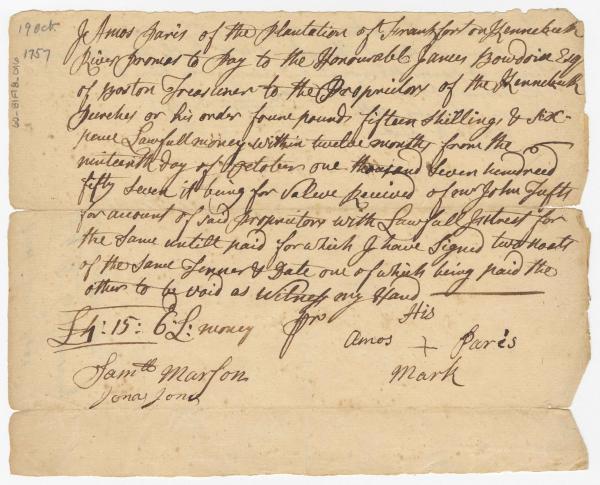 19 Oct.
1757
I Amos Paris of the Plantation of Frankfort on Kennebeck
River promes to Pay to the Honourable James Bowdoin Esq
of Boston Treasurer to the Proprietors of the Kennebeck
Purches or his order foure pounds fifteen Shillings & Six-
pence Lawfull money within twelve months from the
ninteenth Day of October one thousand Seven hundred
fifty Seven it being for Valeue Received of mr John Tufts
for account of said Proprietors with Lawfull Intrest for
the Same untill paid for which I have Signed two noats
of the Same Tenner & Date one of which being paid the
other to be void as Witness my Hand
£4: 15: 6 L: money
His
Amos + Paris
Mark
Samll Marson
Jonas Jones